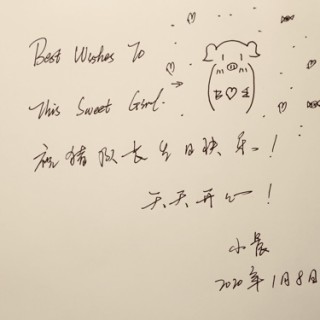 Best Wishes To
This Sweet Girl.
祝猪队长生日快乐!
天天开心!
小晨
2020年1月8日